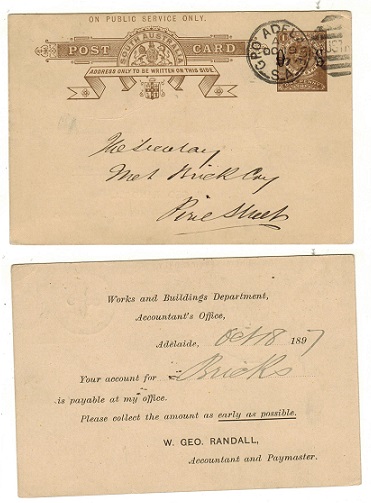 ON PUBLIC SERVICE ONLY.
POST CARD
SOUTH AUSTRALIA
ADDRESS ONLY TO BE WRITTEN ON THIS SIDE.
G.P.O. ADELAIDE
The Secretary
Met Brick Coy
Pirie Street
Works and Buildings Department,
Accountant's Office,
Adelaide, Oct 18 1897
Your account for Bricks
is payable at my office.
Please collect the amount as early as possible.
W. GEO. RANDALL,
Accountant and Paymaster.